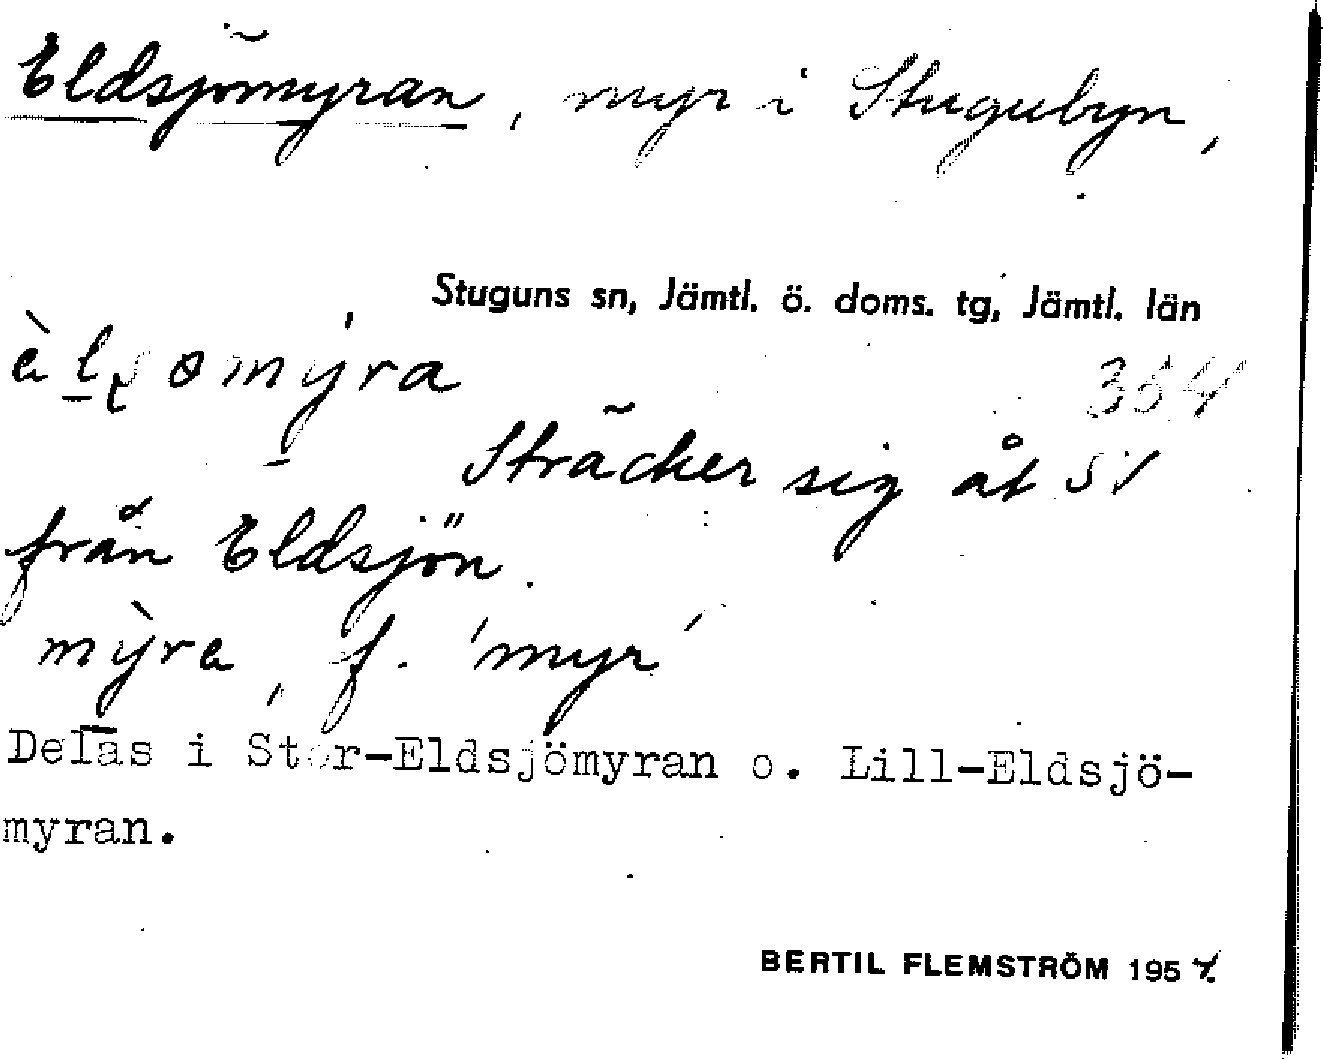 Eldsjömyran, myr i Stugubyn,
Stuguns sn, Jämtl. ö. doms. tg, Jämtl. län
354
Sträcker sig åt
från Eldsjön.
mỳra, f. 'myr'
Delas i Stor-Eldsjömyran o. Lill-Eldsjö-
myran.
BERTIL FLEMSTRÖM 195